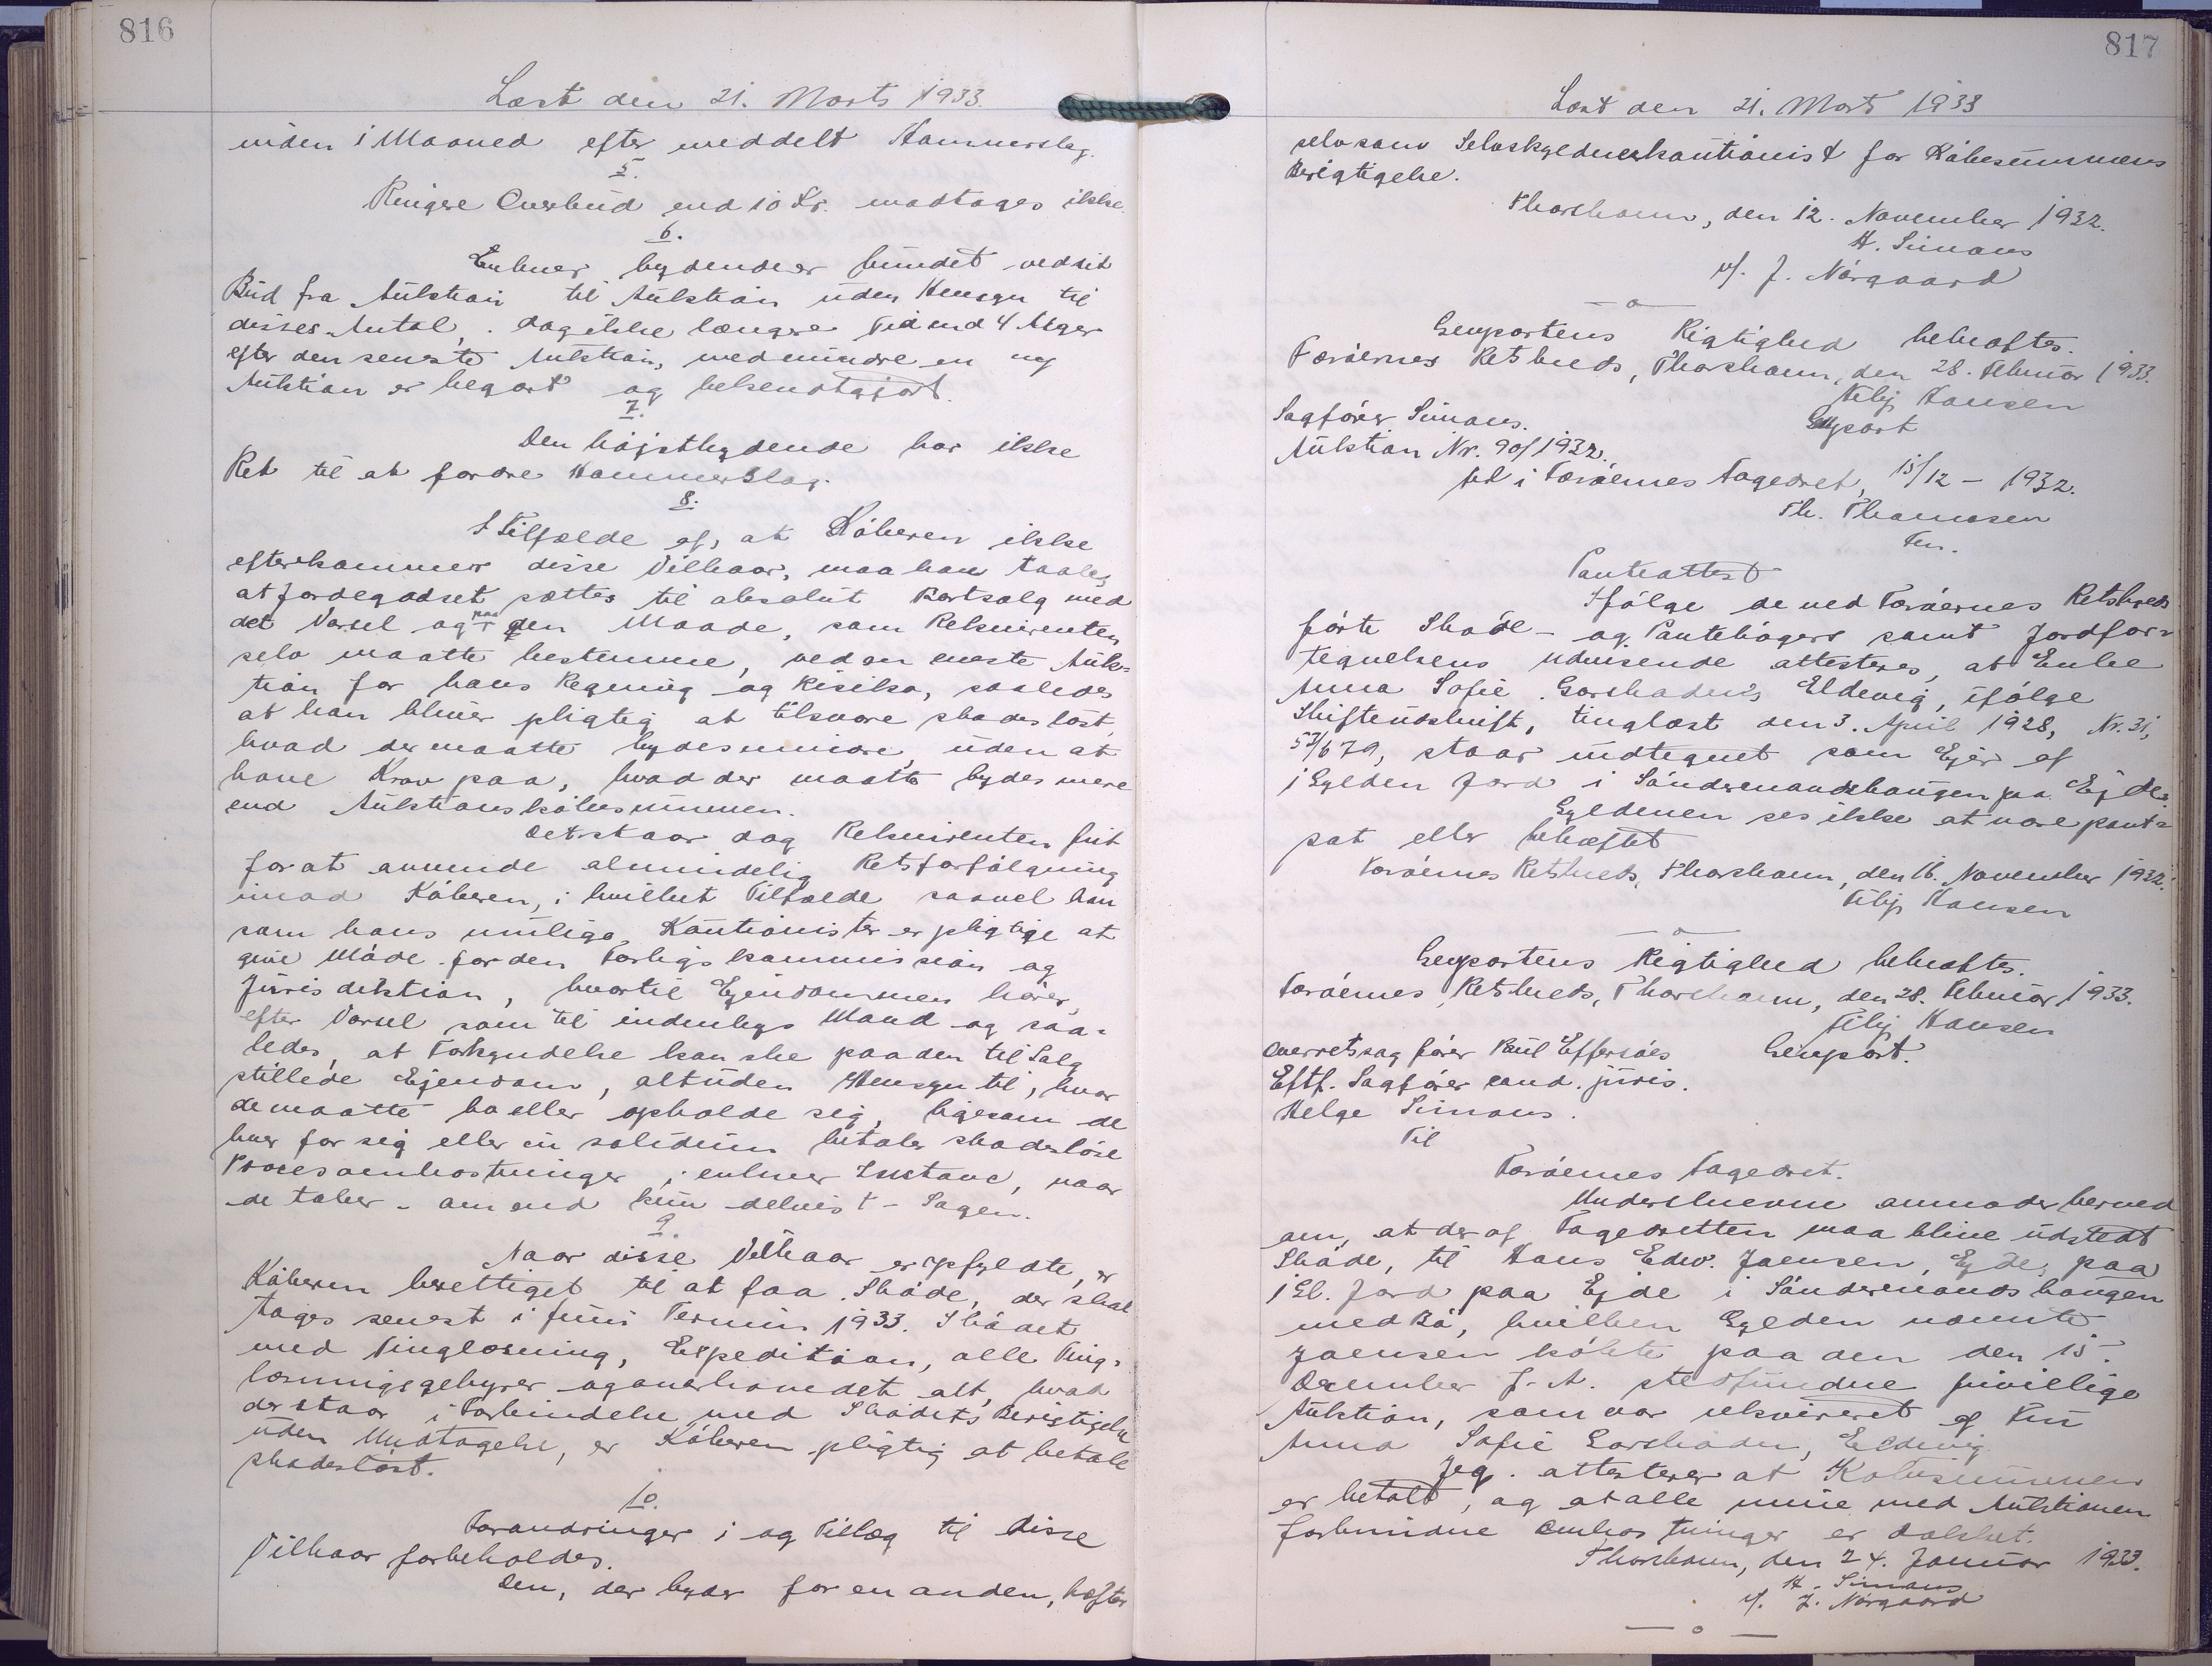 816
Læst den 21. Marts 1933.
inden 1 Maaned efter meddelt Hammerslag.
5.
Ringere Overbud end 10 Kr. modtages ikke.
6.
Enhver bydende er bundet ved sit
Bud fra Auktion til Auktion uden Hensyn til
disses Antal, dog ikke længere Tid end 4 Uger
efter den seneste Auktion, medmindre en ny
Auktion er begært og bekendtgjort.
7.
Den højstbydende har ikke
Ret til at fordre Hammerslag.
8.
I Tilfælde af, at Køberen ikke
efterkommer disse Vilkaar, maa han taale,
at Jordegodset sættes til absolut Bortsalg med
det Varsel og paa den Maade, som Rekvirenten
selv maatte bestemme, ved en eneste Auk=
tion for hans Regning og Risiko, saaledes
at han bliver pligtig at tilsvare skadesløst,
hvad der maatte bydes mindre, uden at
have Krav paa, hvad der maatte bydes mere
end Auktionskøbesummen.
Det staar dog Rekvirenten frit
for at anvende almindelig Retsforfølgning
imod Køberen, i hvilket Tilfælde saavel han
som hans mulige Kautionister er pligtige at
give Møde for den Forligskommission og
Jurisdiktion, hvortil Ejendommen hører,
efter Varsel som til indenbys Mand og saa=
ledes, at Forkyndelse kan ske paa den til Salg
stillede Ejendom, alt uden Hensyn til, hvor
de maatte bo eller opholde sig, ligesom de
hver for sig eller in solidum betaler skadesløse
Procesomkostninger i enhver Instans, naar
de taber - om end kun delvist - Sagen.
9.
Naar disse Vilkaar er opfyldte, er
Køberen berettiget til at faa Skøde, der skal
tages senest i Juni Termin 1933. Skødet
med Tinglæsning, Expedition, alle Ting=
læsningsgebyrer og overhovedet alt, hvad
der staar i Forbindelse med Skødets Berigtigelse
uden Undtagelse, er Køberen pligtig at betale
skadesløst.
10.
Forandringer i og Tillæg til disse
Vilkaar forbeholdes.
Den, der byder for en anden, hæfter
817
Læst den 21. Marts 1933
selv som Selvskyldnerkautionist for Købesummens
Berigtigelse.
Thorshavn, den 12. November 1932.
H. Simons
v/. J. Nørgaard
— o —
Genpartens Rigtighed bekræftes.
Færøernes Retskreds, Thorshavn, den 28. Februar 1933.
Filip Hansen
Sagfører Simons.
Genpart
Auktion Nr. 90/1932.
til i Færøernes Fogedret, 15/12 - 1932.
Th. Thomasen
Fm.
Panteattest
Ifølge de ved Færøernes Retskreds
førte Skøde- og Pantebøger samt Jordfor=
tegnelsens Udvisende attesteres, at Enke
Anna Sofie Garshadn, Eldevig, ifølge
Skifteudskrift, tinglæst den 3. April 1928, Nr. 31,
57/679, staar indtegnet som Ejer af
1 Gylden Jord i Søndremandshaugen paa Ejde.
Gyldenen ses ikke at være pant=
sat eller behæftet
Færøernes Retskreds, Thorshavn, den 16. November 1932.
Filip Hansen
— o —
Genpartens Rigtighed bekræftes.
Færøernes Retskreds, Thorshavn, den 28. Februar 1933.
Filip Hansen
Overretssagfører Paul Effersøes
Genpart.
Eftf. Sagfører cand. juris.
Helge Simons.
Til
Færøernes Fogedret.
Underskrevne anmoder herved
om, at der af Fogedretten maa blive udstedt
Skøde, til Hans Edv. Joensen, Ejde, paa
1 Gl. Jord paa Ejde i Søndremandshaugen
med Bø, hvilken Gylden nævnte
Joensen købte paa den den 15.
December f. A. stedfundne frivillige
Auktion, som var rekvireret af Fru
Anna Sofie Garshadn, Eldevig.
Jeg attesterer at Købesummen
er betalt, og at alle mine med Auktionen
forbundne Omkostninger er dækket.
Thorshavn, den 24. Januar 1933.
H. Simons
v/. J. Nørgaard
— o —